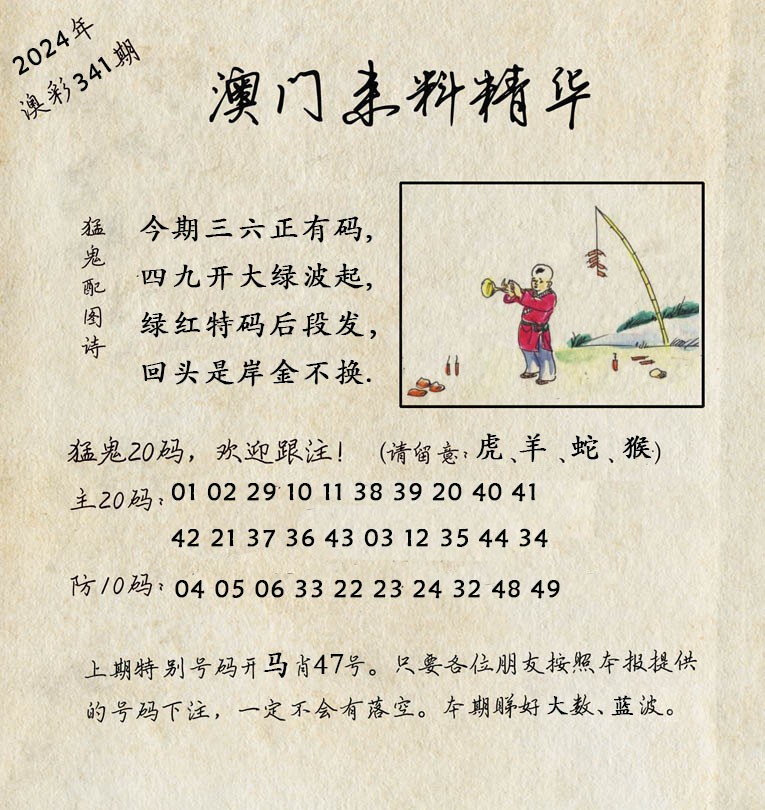 2024年
澳彩341期
澳门来料精华
猛鬼配图诗
今期三六正有码,
四九开大绿波起,
绿红特码后段发,
回头是岸金不换.
猛鬼20码，欢迎跟注！（请留意：虎、羊、蛇、猴）
主20码：01 02 29 10 11 38 39 20 40 41
42 21 37 36 43 03 12 35 44 34
防10码：04 05 06 33 22 23 24 32 48 49
上期特别号码开马肖47号。只要各位朋友按照本报提供
的号码下注，一定不会有落空。本期睇好大数、蓝波。